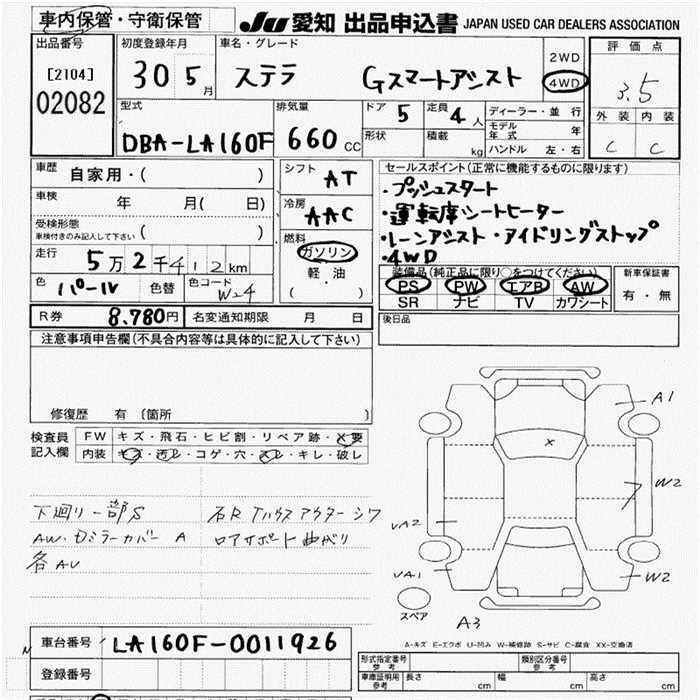 車内保管・守衛保管
JU 愛知 出品申込書 JAPAN USED CAR DEALERS ASSOCIATION
出品番号
[2104]
02082
初度登録年月
30 5月
車名・グレード
ステラ Gスマートアシスト
2WD
4WD
評価点
3.5
外装 内装
C C
型式
DBA-LA160F
排気量
660 CC
ドア 5
定員 4人
形状
積載 kg
ディーラー・並行
モデル年式 年
ハンドル 左・右
車歴
自家用・( )
車検
年 月( 日)
受検形態
車検付きのみ記入して下さい ( )
走行
5万2千412km
色 パール 色替 色コード W24
シフト AT
冷房 AAC
燃料
ガソリン
軽・油
( )
セールスポイント(正常に機能するものに限ります)
・プッシュスタート
・運転席シートヒーター
・レーンアシスト・アイドリングストップ
・4WD
装備品(純正品に限り○をつけてください)
PS PW エアB AW
SR ナビ TV カワシート
新車保証書
有・無
R券 8,780円 名変通知期限 月 日
後日品
注意事項申告欄(不具合内容等は具体的に記入して下さい)
修復歴 有 〔箇所 〕
検査員記入欄
FW キズ・飛石・ヒビ割・リペア跡・X要
内装 キズ・汚レ・コゲ・穴・スレ・キレ・破レ
下廻り一部S 右Rタイヤハウスアウターシワ
AW・ミラーカバー A ロアサポート曲がり
各AU
A1
W2
W2
A3
VA2
VA1
スペア
A-キズ E-エクボ U-凹み W-補修跡 S-サビ C-腐食 XX-交換済
車台番号 LA160F-0011926
登録番号
型式指定番号 参考
類別区分番号 参考
車庫証明用 参考 長さ cm 幅 cm 高さ cm